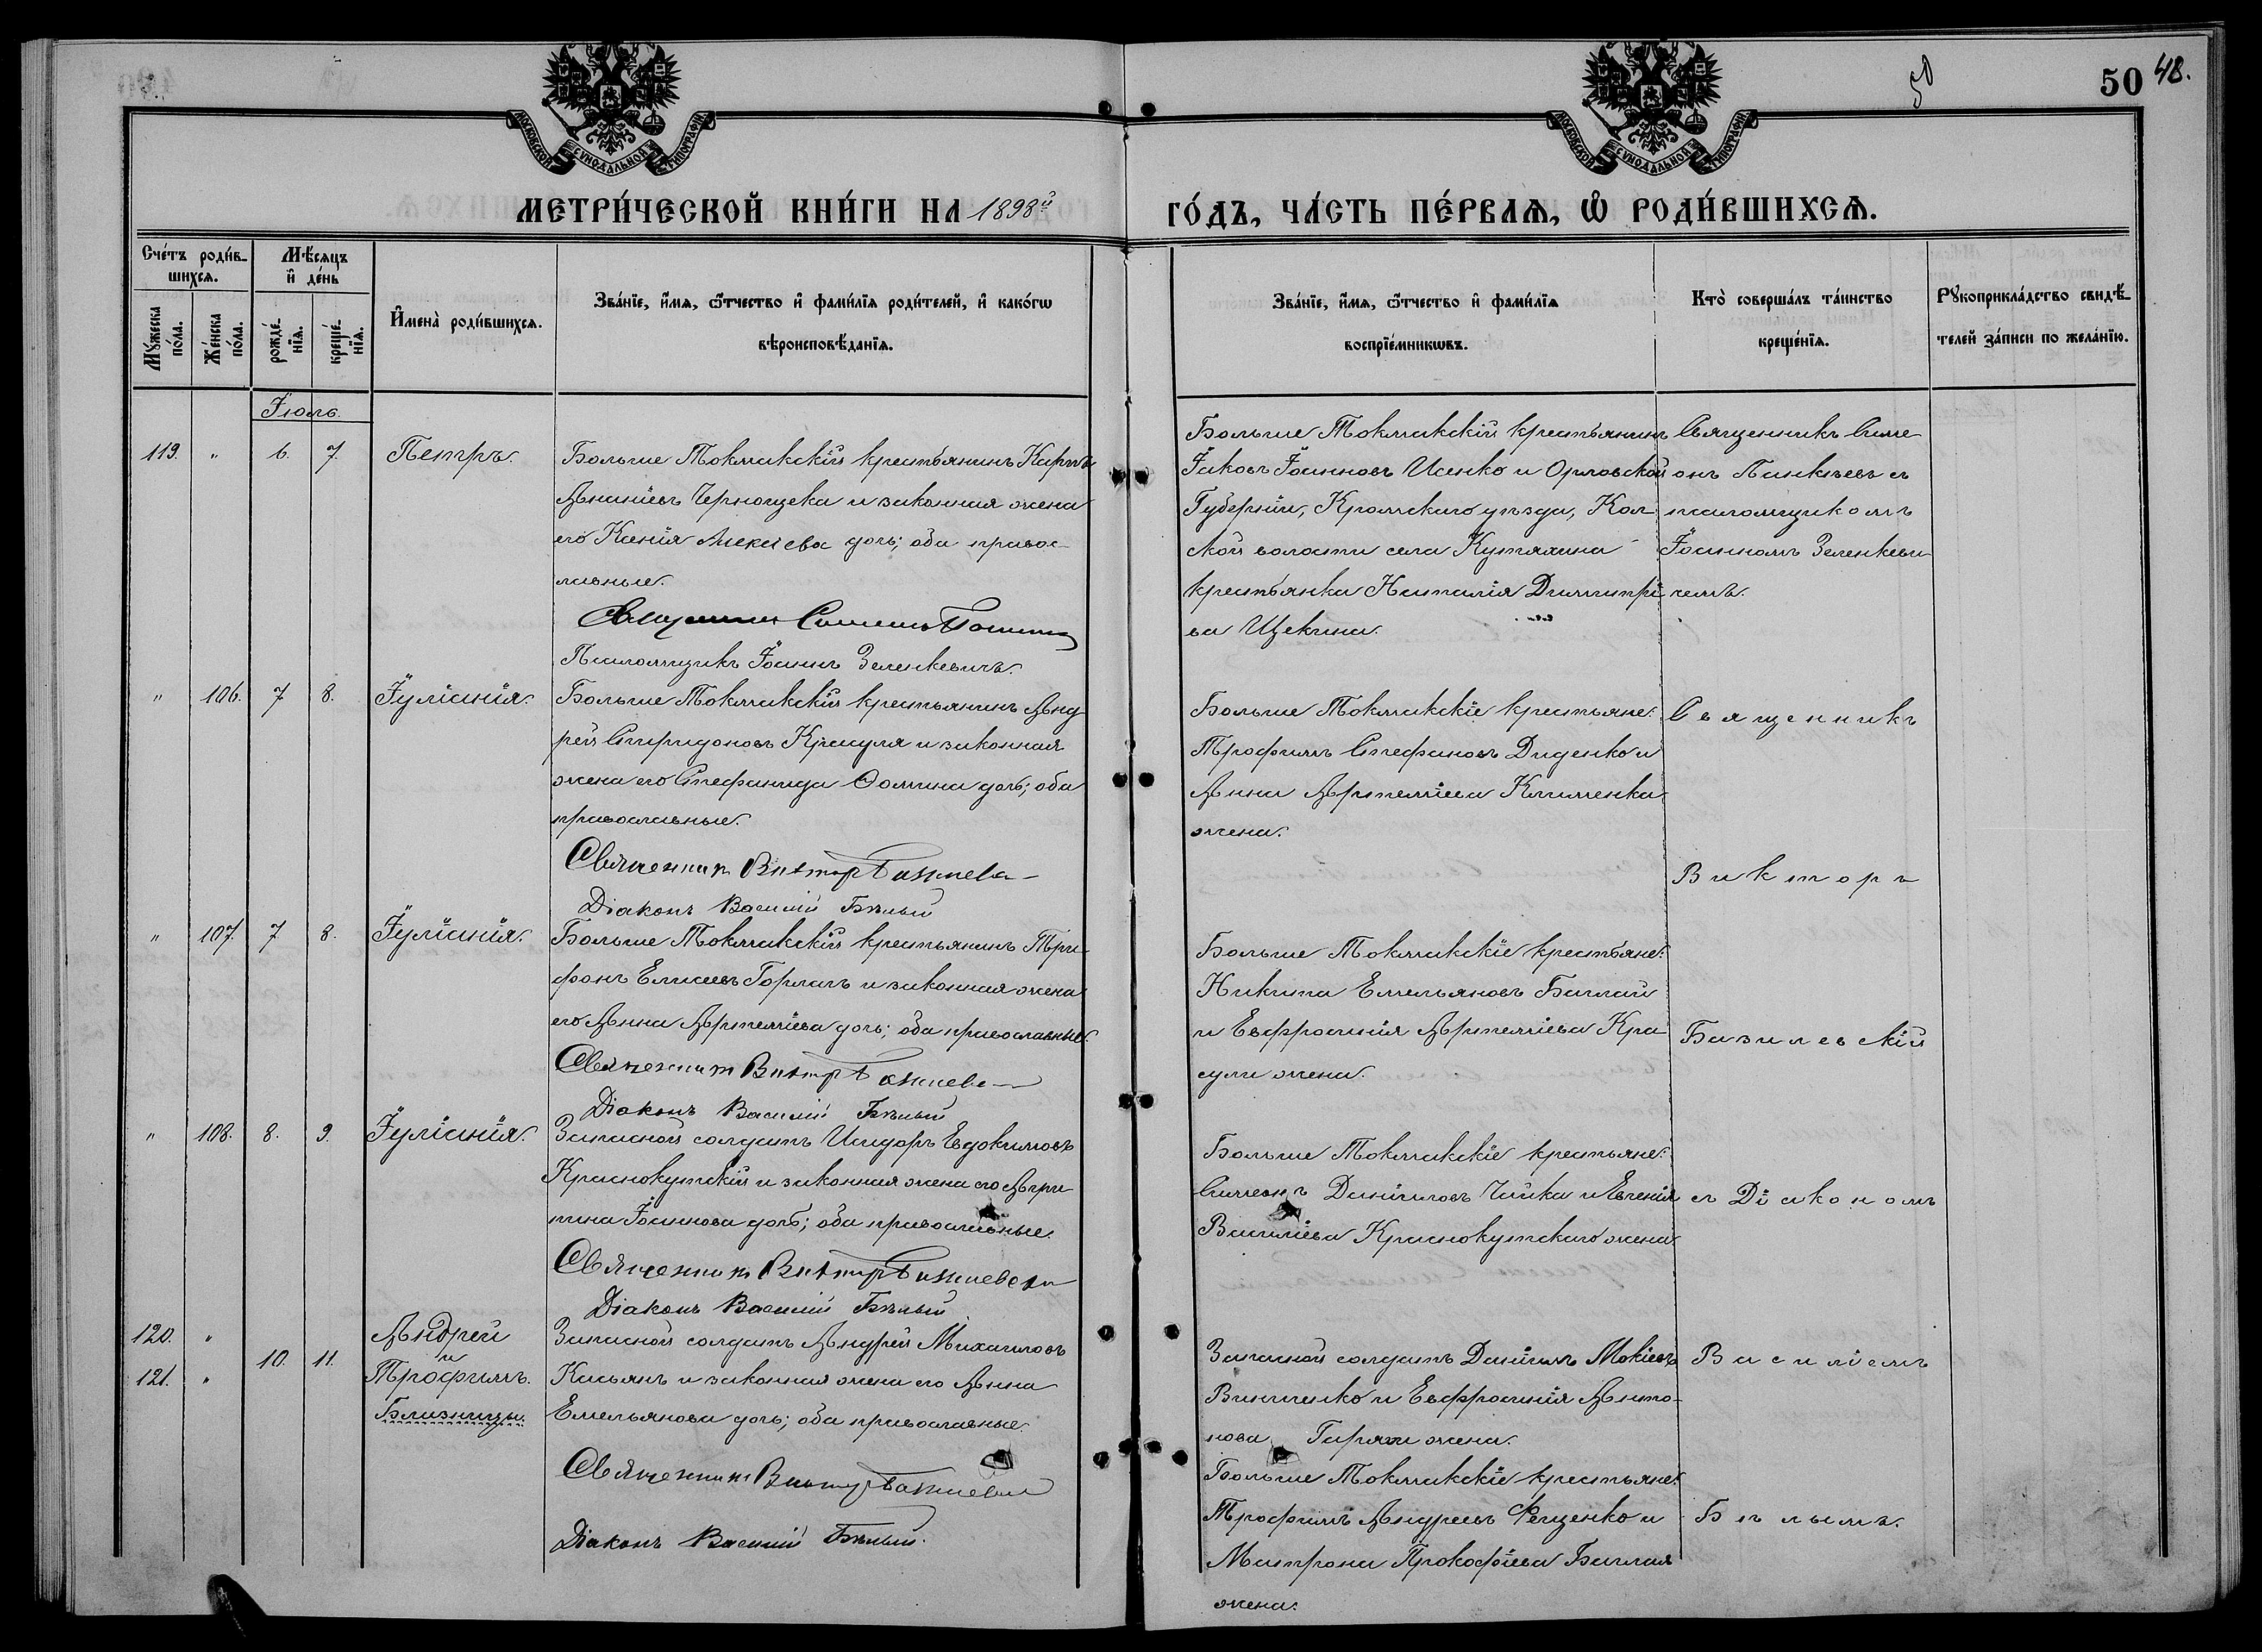 50
50 48.
МОСКОВСКОЙ СѴНОДАЛЬНОЙ ТИПОГРАФІИ
МОСКОВСКОЙ СѴНОДАЛЬНОЙ ТИПОГРАФІИ
МЕТРИ́ЧЕСКОЙ КНИ́ГИ НА 1898й
ГО́ДЪ, ЧА́СТЬ ПЕ́РВАѦ, Ѡ҆ РОДИ́ВШИХСѦ.
Сче́тъ роди́в-
шихсѧ.
Мꙋ́жеска по́ла.
Же́нска по́ла.
Мѣ́сѧцъ
и҆ де́нь
рожде́-
нїѧ.
креще́-
нїѧ.
И҆мена̀ роди́вшихсѧ.
Зва́нїе, и҆́мѧ, ѻ҆́тчество и҆ фами́лїѧ роди́телей, и҆ како́гѡ
вѣроисповѣ́данїѧ.
Зва́нїе, и҆́мѧ, ѻ҆́тчество и҆ фами́лїѧ
воспрїе́мникѡвъ.
Кто̀ соверша́лъ та́инство
креще́нїѧ.
Рꙋкоприкла́дство свидѣ́-
телей за́писи по жела́нїю.
Іюль.
119. " 6. 7. Петръ.
Больше Токмакскій крестьянинъ Карпъ
Ананіевъ Чернощека и законная жена
его Ксенія Алексіева дочь; оба правос-
лавные.
Священникъ Симеонъ
Псаломщикъ Іоаннъ Зеленкевичъ.
Больше Токмакскій крестьянинъ
Іаковъ Іоанновъ Исенко и Орловской
Губерніи, Кромскаго уѣзда, Кол-
ской волости села Кутяхина
крестьянка Наталія Димитріе-
ва Щекина.
Священникъ Симе-
онъ Панкѣевъ съ
псаломщикомъ
Іоанномъ Зеленкеви-
чемъ.
" 106. 7 8. Іуліанія.
Больше Токмакскій крестьянинъ Анд-
рей Спиридоновъ Красуля и законная
жена его Стефанида Ѳомина дочь; оба
православные.
Священникъ Викторъ Базилевс
Діаконъ Василій Бѣлый
Больше Токмакскіе крестьяне:
Трофимъ Стефановъ Диденко и
Анна Артеміева Клименка
жена.
Священникъ
Викторъ
" 107. 7 8. Іуліанія.
Больше Токмакскій крестьянинъ Три-
фонъ Елисеевъ Горлачъ и законная жена
его Анна Артеміева дочь; оба православные.
Священникъ Викторъ Базилевс
Діаконъ Василій Бѣлый
Больше Токмакскіе крестьяне:
Никита Емельяновъ Баглай
и Евфросинія Артеміева Кра-
сули жена.
Базилевскій
" 108. 8. 9. Іуліанія.
Запасной солдатъ Исидоръ Евдокимовъ
Краснокутскій и законная жена его Агри-
пина Іоаннова дочь; оба православные.
Священникъ Викторъ Базилевскі
Діаконъ Василій Бѣлый
Больше Токмакскіе крестьяне:
Симеонъ Даніиловъ Чайка и Евгенія
Василіева Краснокутскаго жена.
съ Діакономъ
120. " Андрей
и
121. " 10. 11. Трофимъ.
Близнецы.
Запасной солдатъ Андрей Михаиловъ
Касьянъ и законная жена его Анна
Емельянова дочь; оба православные.
Священникъ Викторъ Базилевскі
Діаконъ Василій Бѣлый.
Запасной солдатъ Даніилъ Мокіевъ
Винниченко и Евфросинія Анто-
нова Гаряжи жена.
Больше Токмакскіе крестьяне:
Трофимъ Андреевъ Фещенко и
Матрона Прокофіева Баглая
жена.
Василіемъ
Бѣлымъ.